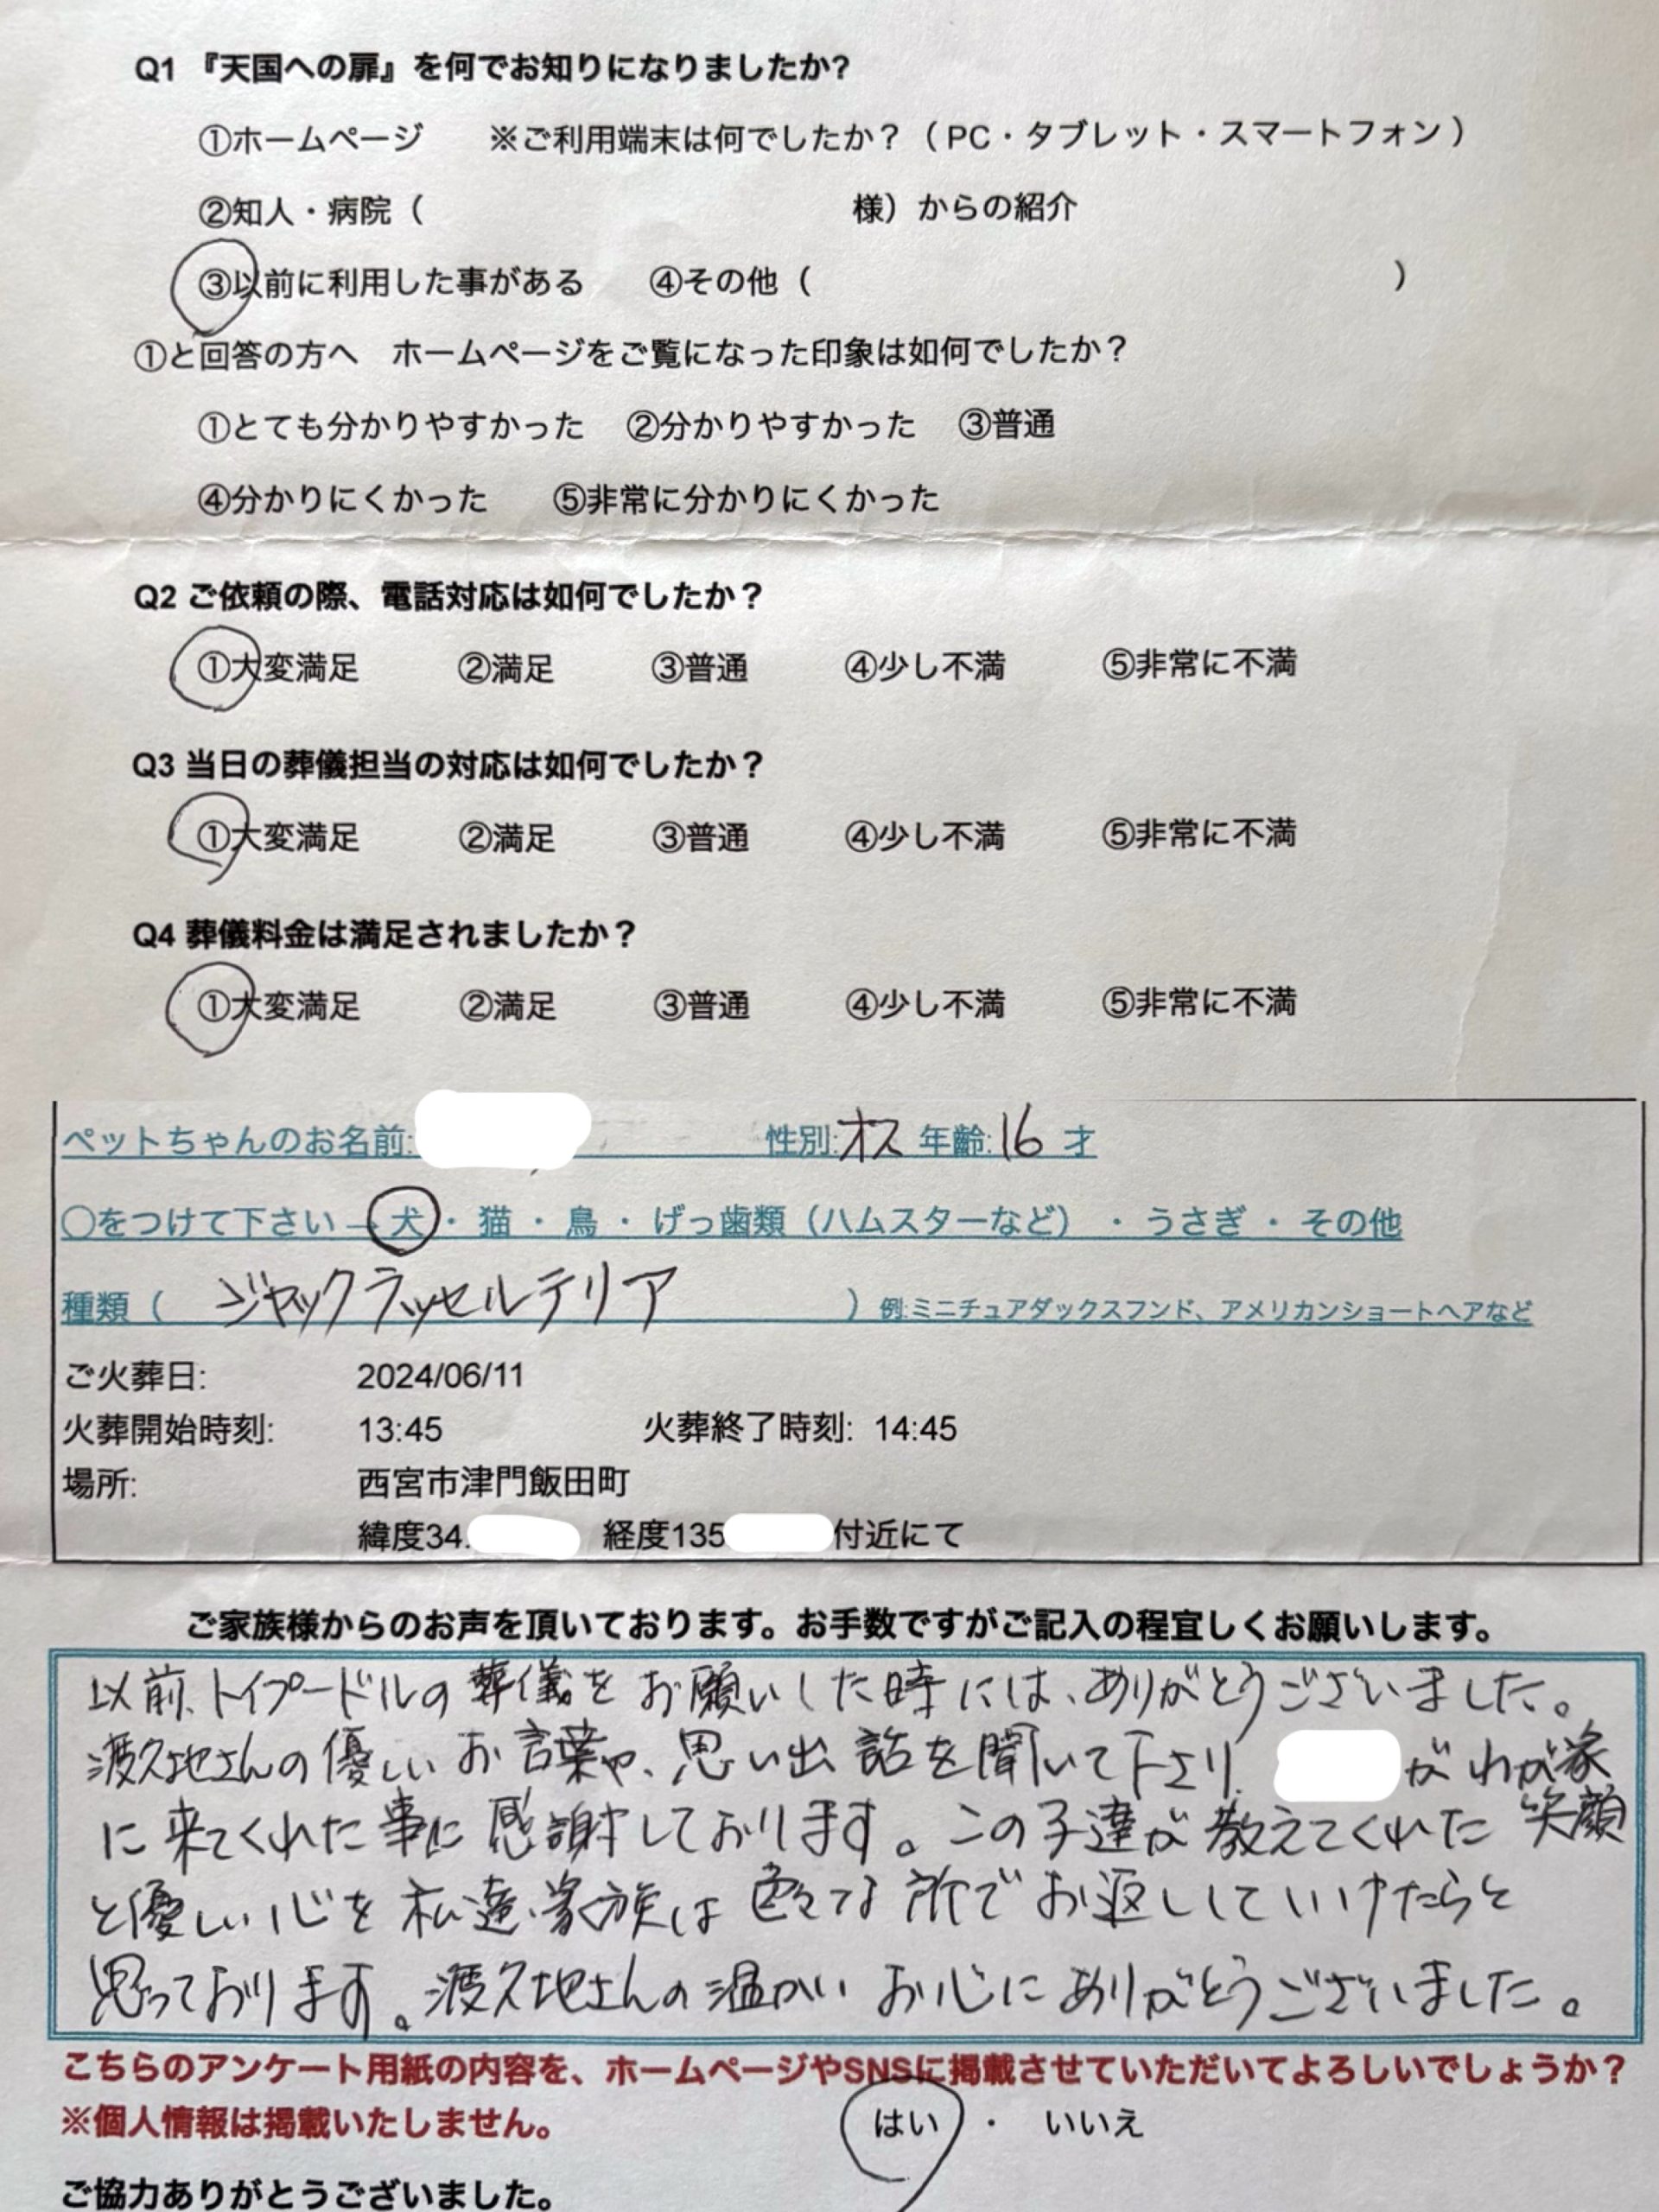 Q1 『天国への扉』を何でお知りになりましたか?
①ホームページ　※ご利用端末は何でしたか？（PC・タブレット・スマートフォン）
②知人・病院（　　　様）からの紹介
③以前に利用した事がある　④その他（　　　）
①と回答の方へ　ホームページをご覧になった印象は如何でしたか？
①とても分かりやすかった　②分かりやすかった　③普通
④分かりにくかった　⑤非常に分かりにくかった
Q2 ご依頼の際、電話対応は如何でしたか？
①大変満足　②満足　③普通　④少し不満　⑤非常に不満
Q3 当日の葬儀担当の対応は如何でしたか？
①大変満足　②満足　③普通　④少し不満　⑤非常に不満
Q4 葬儀料金は満足されましたか？
①大変満足　②満足　③普通　④少し不満　⑤非常に不満
ペットちゃんのお名前:　性別:オス 年齢:16 才
○をつけて下さい→犬・猫・鳥・げっ歯類（ハムスターなど）・うさぎ・その他
種類（ ジャックラッセルテリア ）例:ミニチュアダックスフンド、アメリカンショートヘアなど
ご火葬日: 2024/06/11
火葬開始時刻: 13:45　火葬終了時刻: 14:45
場所: 西宮市津門飯田町
緯度34.　経度135　付近にて
ご家族様からのお声を頂いております。お手数ですがご記入の程宜しくお願いします。
以前、トイプードルの葬儀をお願いした時には、ありがとうございました。
渡久地さんの優しいお言葉や、思い出話を聞いて下さり、　がわが家
に来てくれた事に感謝しております。この子達が教えてくれた笑顔
と優しい心を私達家族は色々な所でお返ししていけたらと
思っております。渡久地さんの温かいお心にありがとうございました。
こちらのアンケート用紙の内容を、ホームページやSNSに掲載させていただいてよろしいでしょうか？
※個人情報は掲載いたしません。　はい ・ いいえ
ご協力ありがとうございました。